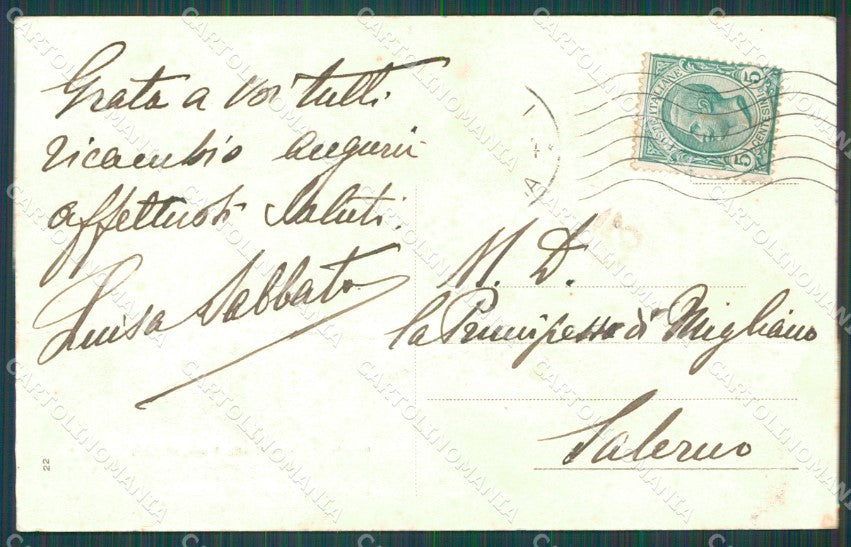 Grata a voi tutti
ricambio auguri
affettuosi saluti.
Luisa Sabbato
POSTE ITALIANE
CENTESIMI
5
5
N. D.
la Principessa di Migliano
Salerno
22
CARTOLINOMANIA